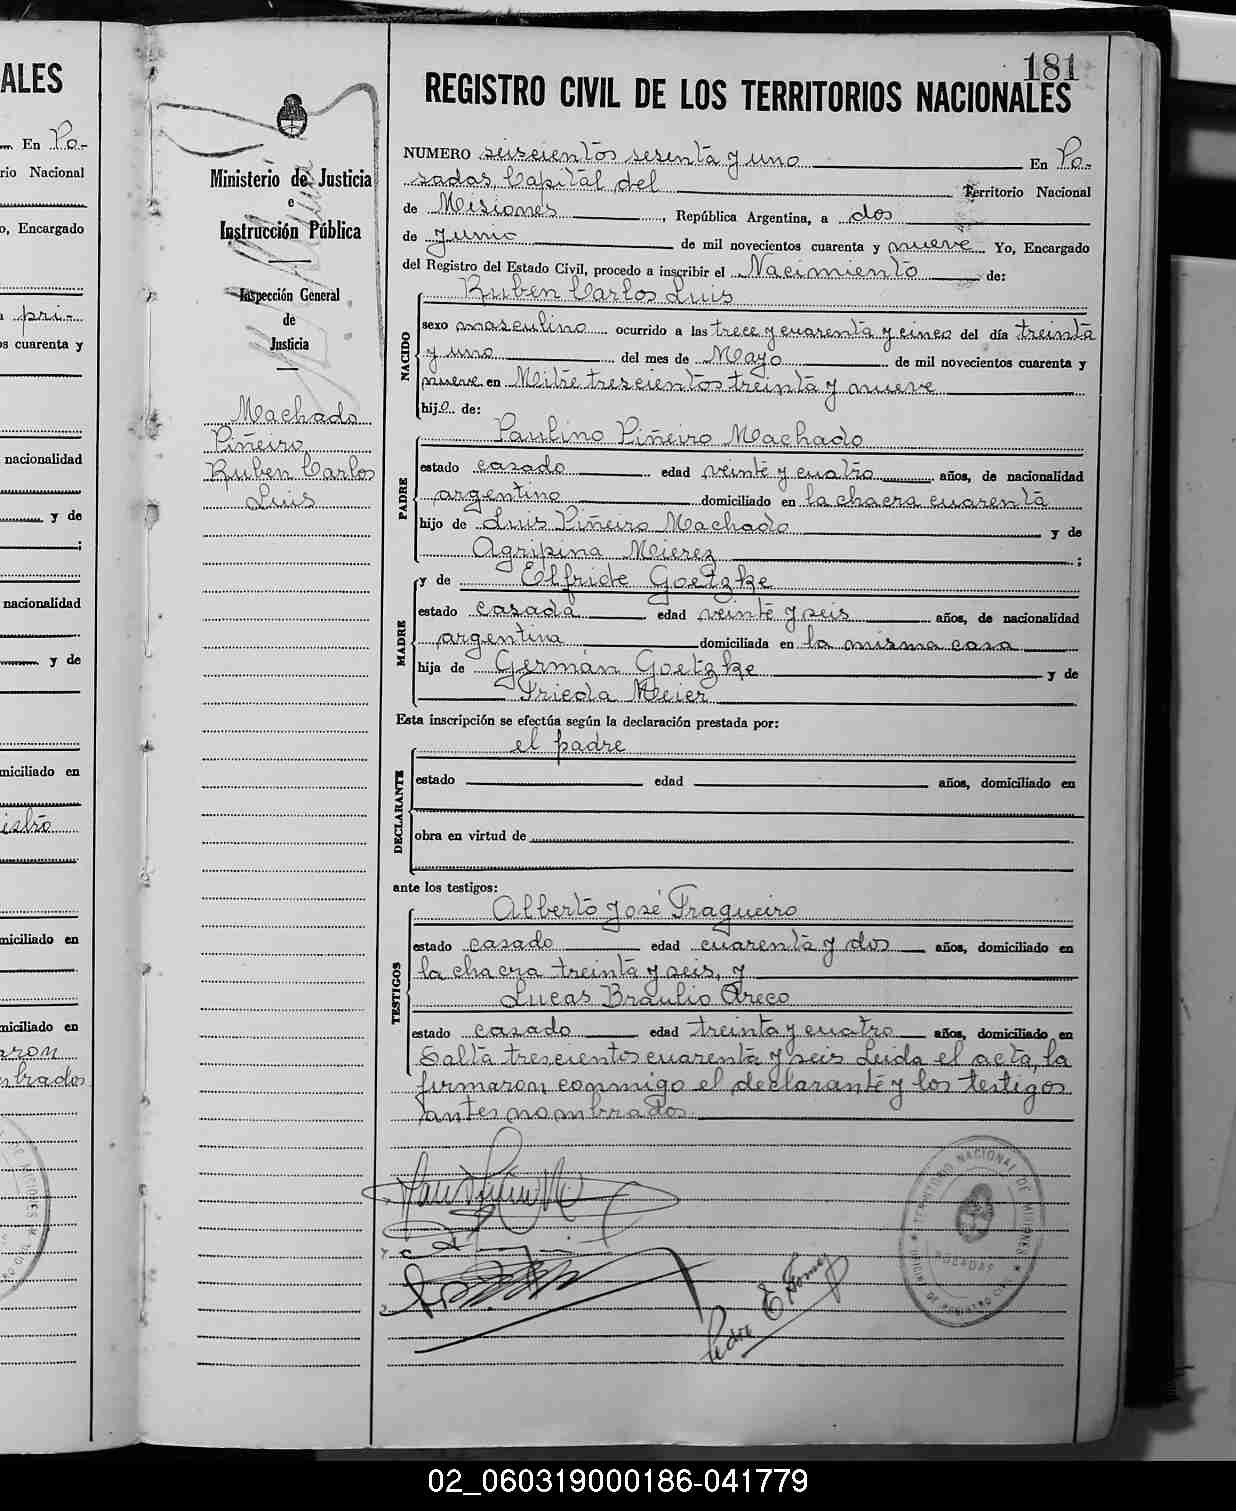 ALES
En Po-
rio Nacional
o, Encargado
a pri-
os cuarenta y
nacionalidad
y de
;
nacionalidad
y de
miciliado en
miciliado en
miciliado en
aron
mbrados
Ministerio de Justicia
e
Instrucción Pública
Inspección General
de
Justicia
Machado
Piñeiro
Ruben Carlos
Luis
181
REGISTRO CIVIL DE LOS TERRITORIOS NACIONALES
NUMERO seiscientos sesenta y uno En Po-
sadas, Capital del Territorio Nacional
de Misiones, República Argentina, a dos
de Junio de mil novecientos cuarenta y nueve Yo, Encargado
del Registro del Estado Civil, procedo a inscribir el Nacimiento de:
Ruben Carlos Luis
NACIDO
sexo masculino ocurrido a las trece y cuarenta y cinco del día treinta
y uno del mes de Mayo de mil novecientos cuarenta y
nueve en Mitre trescientos treinta y nueve
hijo de:
Paulino Piñeiro Machado
PADRE
estado casado edad veinte y cuatro años, de nacionalidad
argentino domiciliado en la chacra cuarenta
hijo de Luis Piñeiro Machado y de
Agripina Meirez ;
y de Elfride Goetzke
MADRE
estado casada edad veinte y seis años, de nacionalidad
argentina domiciliada en la misma casa
hija de Germán Goetzke y de
Frieda Meier
Esta inscripción se efectúa según la declaración prestada por:
el padre
DECLARANTE
estado edad años, domiciliado en
obra en virtud de
ante los testigos:
Alberto José Fragueiro
TESTIGOS
estado casado edad cuarenta y dos años, domiciliado en
la chacra treinta y seis, y
Lucas Braulio Areco
estado casado edad treinta y cuatro años, domiciliado en
Salta trescientos cuarenta y seis Leida el acta, la
firmaron conmigo el declarante y los testigos
antes nombrados.
TERRITORIO NACIONAL DE MISIONES
POSADAS
OFICINA DE REGISTRO CIVIL
E Gomez
02_060319000186-041779